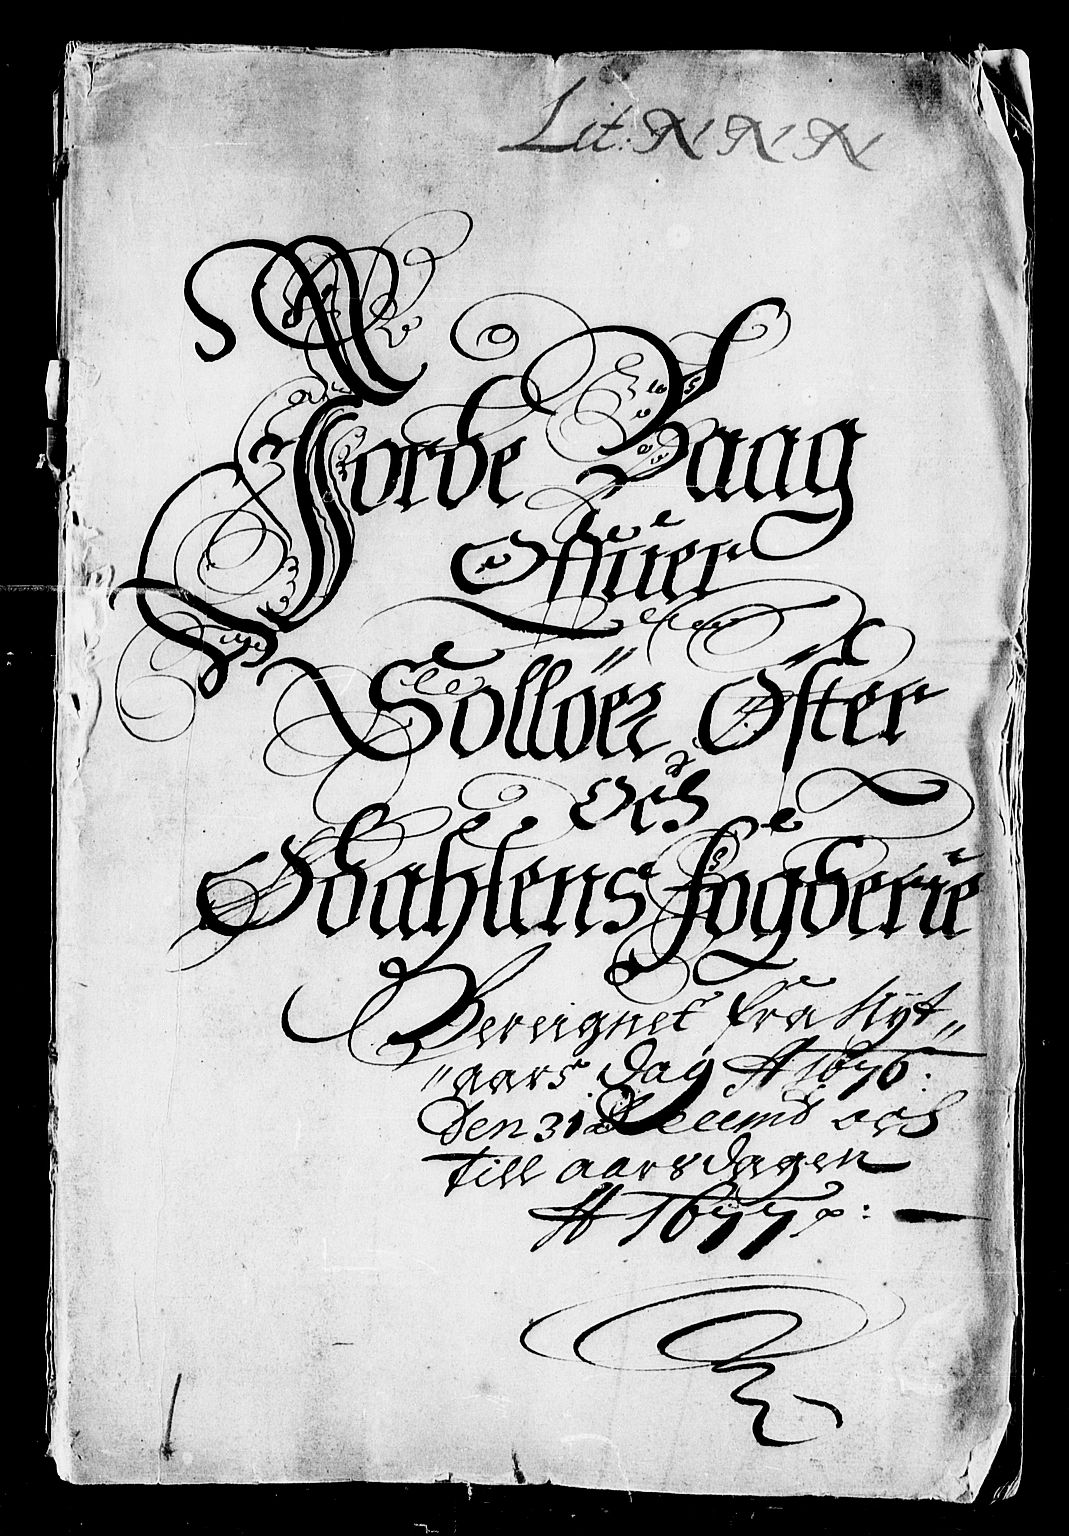 Lit: N N N
Jorde Baag
Offuer
Sollöer Öster
Och
Odahlens fogderie
Bereignet fra Nyt„
„aars dag A 1676:
Den 31 Decemb och
till aarsdagen
A 1677